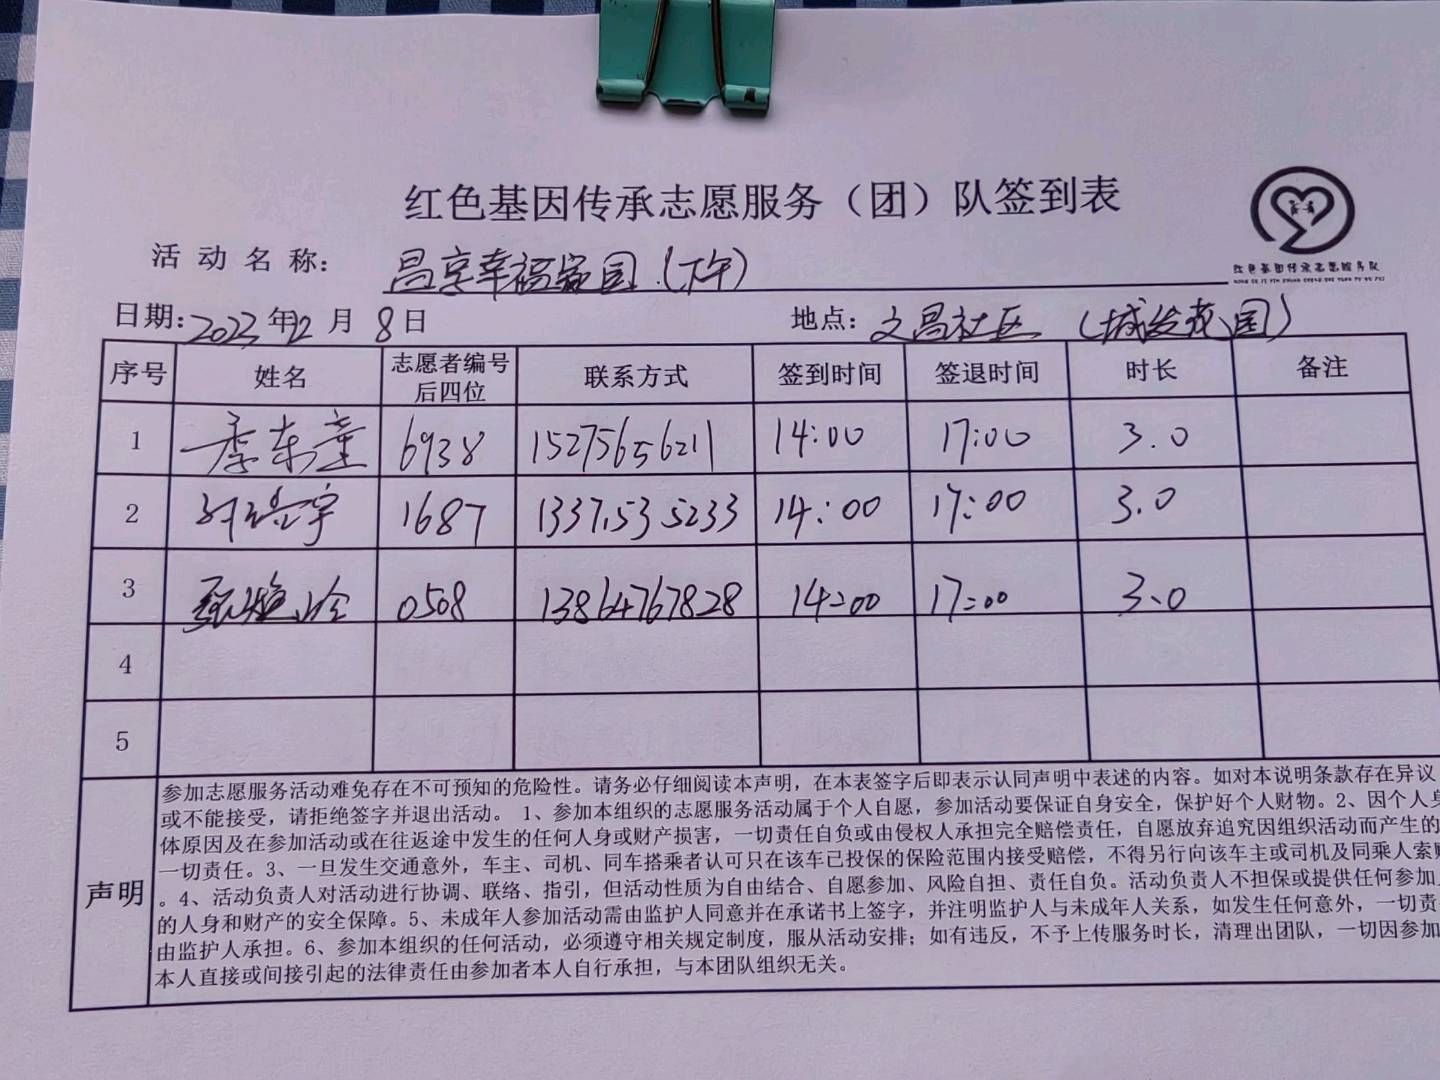 红色基因传承志愿服务（团）队签到表
红色基因传承志愿服务队
活动名称： 昌享幸福家园（下午）
日期：2023年12月8日 地点：文昌社区（城发花园）
序号 姓名 志愿者编号后四位 联系方式 签到时间 签退时间 时长 备注
1 季东童 6938 15275656211 14:00 17:00 3.0
2 1687 13375355233 14:00 17:00 3.0
3 0508 13864767828 14:00 17:00 3.0
4
5
声明
参加志愿服务活动难免存在不可预知的危险性。请务必仔细阅读本声明，在本表签字后即表示认同声明中表述的内容。如对本说明条款存在异议
或不能接受，请拒绝签字并退出活动。 1、参加本组织的志愿服务活动属于个人自愿，参加活动要保证自身安全，保护好个人财物。2、因个人身
体原因及在参加活动或在往返途中发生的任何人身或财产损害，一切责任自负或由侵权人承担完全赔偿责任，自愿放弃追究因组织活动而产生的
一切责任。3、一旦发生交通意外，车主、司机、同车搭乘者认可只在该车已投保的保险范围内接受赔偿，不得另行向该车主或司机及同乘人索赔
。4、活动负责人对活动进行协调、联络、指引，但活动性质为自由结合、自愿参加、风险自担、责任自负。活动负责人不担保或提供任何参加
的人身和财产的安全保障。5、未成年人参加活动需由监护人同意并在承诺书上签字，并注明监护人与未成年人关系，如发生任何意外，一切责
由监护人承担。6、参加本组织的任何活动，必须遵守相关规定制度，服从活动安排；如有违反，不予上传服务时长，清理出团队，一切因参加
本人直接或间接引起的法律责任由参加者本人自行承担，与本团队组织无关。